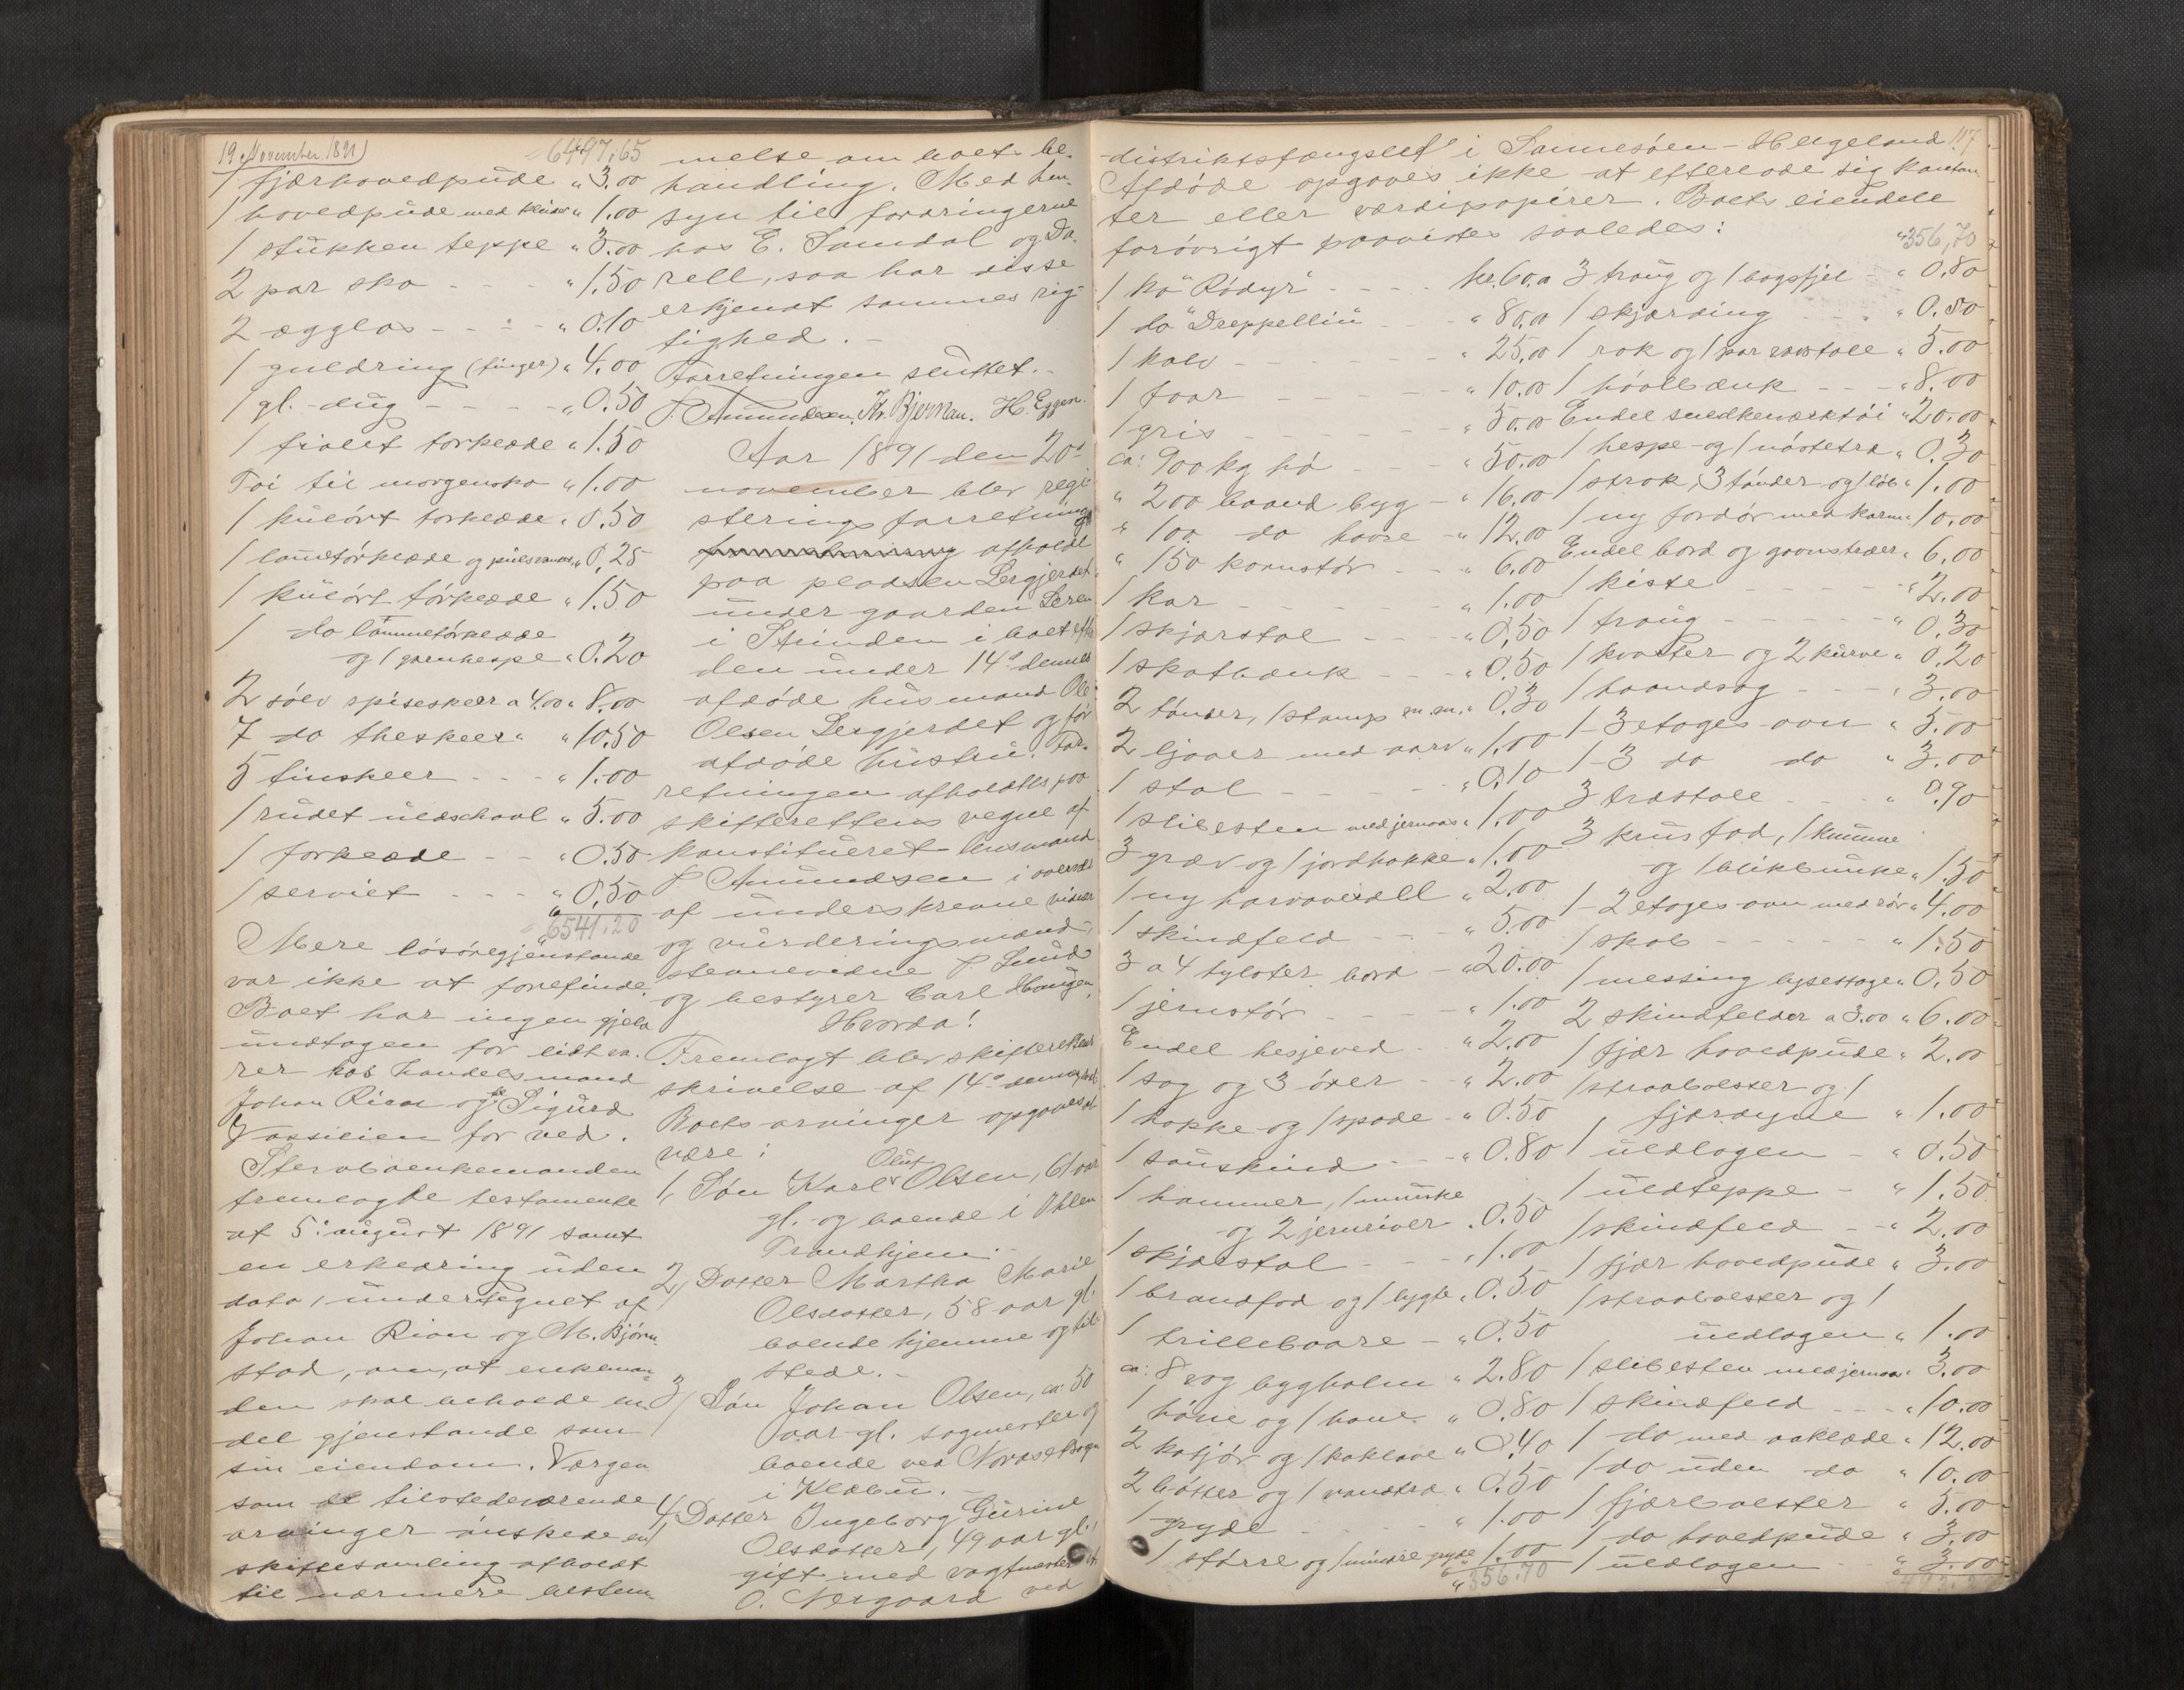 19 November 1891)
6497.65
1 fjærhovedpude " 3.00
1 hovedpude med " 1.00
1 stukken teppe " 3.00
2 par sko - - - " 1.50
2 ægglas - - - " 0.10
1 guldring (finger) " 4.00
1 gl. dug - - - - " 0.50
1 fiolet torklæde " 1.50
Tøi til morgensko " 1.00
1 kulørt torklæde " 0.50
1 lommetørklæde og pulsvanter " 0.25
1 kulørt tørklæde " 1.50
1 do lommetørklæde
og 1 garnhespe " 0.20
2 sølv spiseskeer a 4.00 " 8.00
7 do theskeer " " 10.50
5 tinskeer - - - " 1.00
1 rudet uldschavl " 5.00
1 forklæde - - " 0.50
1 serviet - - - " 0.50
6541.20
Mere løsøregjenstande
var ikke at forefinde.
Boet har ingen gjeld
undtagen for lidt va-
rer hos handelsmand
Johan Rian og til Sigurd
Vasslien for ved.
Stervboenkemanden
fremlagde testamente
af 5: august 1891 samt
en erklæring uden
dato, undertegnet af
Johan Rian og M. Bjørn-
stad, om, at enkeman-
den skal beholde en
del gjenstande som
sin eiendom. Værgen
som de tilstedeværende
arvinger ønskede en
skiftesamling afholdt
til nærmere bestem-
melse om boets be-
handling. Med hen-
syn til fordringerne
hos E. Samdal og Do-
rell, saa har disse
erkjendt sammes rig-
tighed. -
Forretningen sluttet. -
P. Amundsen. Kr. Bjernan. H. Eggen.
Aar 1891 den 20de
november blev regi-
steringsforretning
afholdt
paa pladsen Lergjerdet
under gaarden Leren
i Strinden i boet efter
den under 14d dennes
afdøde husmand Ole
Olsen Lergjerdet og før
afdøde hustru. For-
retningen afholdtes paa
skifterettens vegne af
konstitueret lensmand
P. Amundsen i overvær
af underskrevne vidner
og vurderingsmænd,
stevnevidne P. Lund
og bestyrer Carl Haugen.
Hvorda!
Fremlagt blev skifterettens
skrivelse af 14d dennes
Boets arvinger opgaves at
være:
1, Søn Karl Oluf Olsen, 61 aar
gl. og boende i Ihlen
Trondhjem. -
2, Datter Martha Marie
Olsdatter, 58 aar gl.
boende hjemme og til-
stede. -
3, Søn Johan Olsen, ca: 50
aar gl. sagmester og
boende ved
i Klæbu. -
4, Datter Ingeborg Gurine
Olsdatter, 49 aar gl.,
gift med vagtmester
O. Nergaard ved
117
distriktsfængslet i Sannesøen - Helgeland.
Afdøde opgaves ikke at efterlade sig kontan-
ter eller værdipapirer. Boets eiendele
forøvrigt paavistes saaledes:
1 ko "Rødyr" - - - - kr. 60.00
1 do "Dreppellin" - - " 80.00
1 kalv - - - - " 25.00
1 faar - - - - " 10.00
1 gris - - - - " 30.00
ca: 900 kg hø - - - " 50.00
" 200 baand byg - " 16.00
" 100 do havre - " 12.00
" 150 kornstør - - " 6.00
1 kar - - - - " 1.00
1 skjærstol - - - " 0.50
1 skotbænk - - - " 0.50
2 tønder, 1 stamp m.m. " 0.30
2 ljaaer med orv " 1.00
1 stol - - - - " 0.10
1 slibesten med jernaas " 1.00
3 græv og 1 jordhakke " 1.00
1 ny harv " 2.00
1 skindfeld - - - " 5.00
3 a 4 tylvter bord - " 20.00
1 jernstør - - - - " 1.00
Endel hesjeved - - " 2.00
1 sag og 3 øxer - - " 2.00
1 hakke og 1 spade - " 0.50
1 sauskind - - - " 0.80
1 hammer, 1
og 2 jernriver " 0.50
1 skjærstol - - - " 1.00
1 brandfod og 1 lygte " 0.50
1 trillebaare - - " 0.50
ca: 8 vog byghalm " 2.80
1 høne og 1 hane " 0.80
2 kafjør og 1 kaklave " 0.40
2 bøtter og 1 vandtræ " 0.50
1 gryde - - - - " 1.00
1 større og 1 mindre gryde " 1.00
" 356.70
" 356,70
3 traug og 1 bagsfjel - " 0.80
1 skjærding - - - " 0.50
1 rok og 1 par stole " 5.00
1 høvlbænk - - - " 8.00
Endel snedkerværktøi " 20.00
1 hespe- og 1 nøstetræ " 0.30
1 strok, 3 tønder og 1 løb " 1.00
1 ny fordør med karm " 10.00
Endel bord og " 6.00
1 kiste - - - - " 2.00
1 traug - - - - " 0.30
1 kvarter og 2 kurve " 0.20
1 haandsag - - - " 3.00
1 3 etages ovn " 5.00
1 3 do do " 3.00
3 træstole - - - " 0.90
3 krusfad, 1 kumme
og 1 blikbunke " 1.50
1 2 etages ovn med rør " 4.00
1 skab - - - - " 1.50
1 messing lysestage " 0.50
2 skindfelder a 3.00 " 6.00
1 fjær hovedpude " 2.00
1 straabolster og 1
fjærdyne " 1.00
1 uldlagen - - " 0.50
1 uldteppe - - " 1.50
1 skindfeld - - " 2.00
1 fjær hovedpude " 3.00
1 straabolster og 1
uldlagen " 1.00
1 slibesten med jernaas " 3.00
1 skindfeld - - - " 10.00
1 do med aaklæde " 12.00
1 do uden do " 10.00
1 fjærbolster " 5.00
1 do hovedpude " 3.00
1 uldlagen - - " 3.00